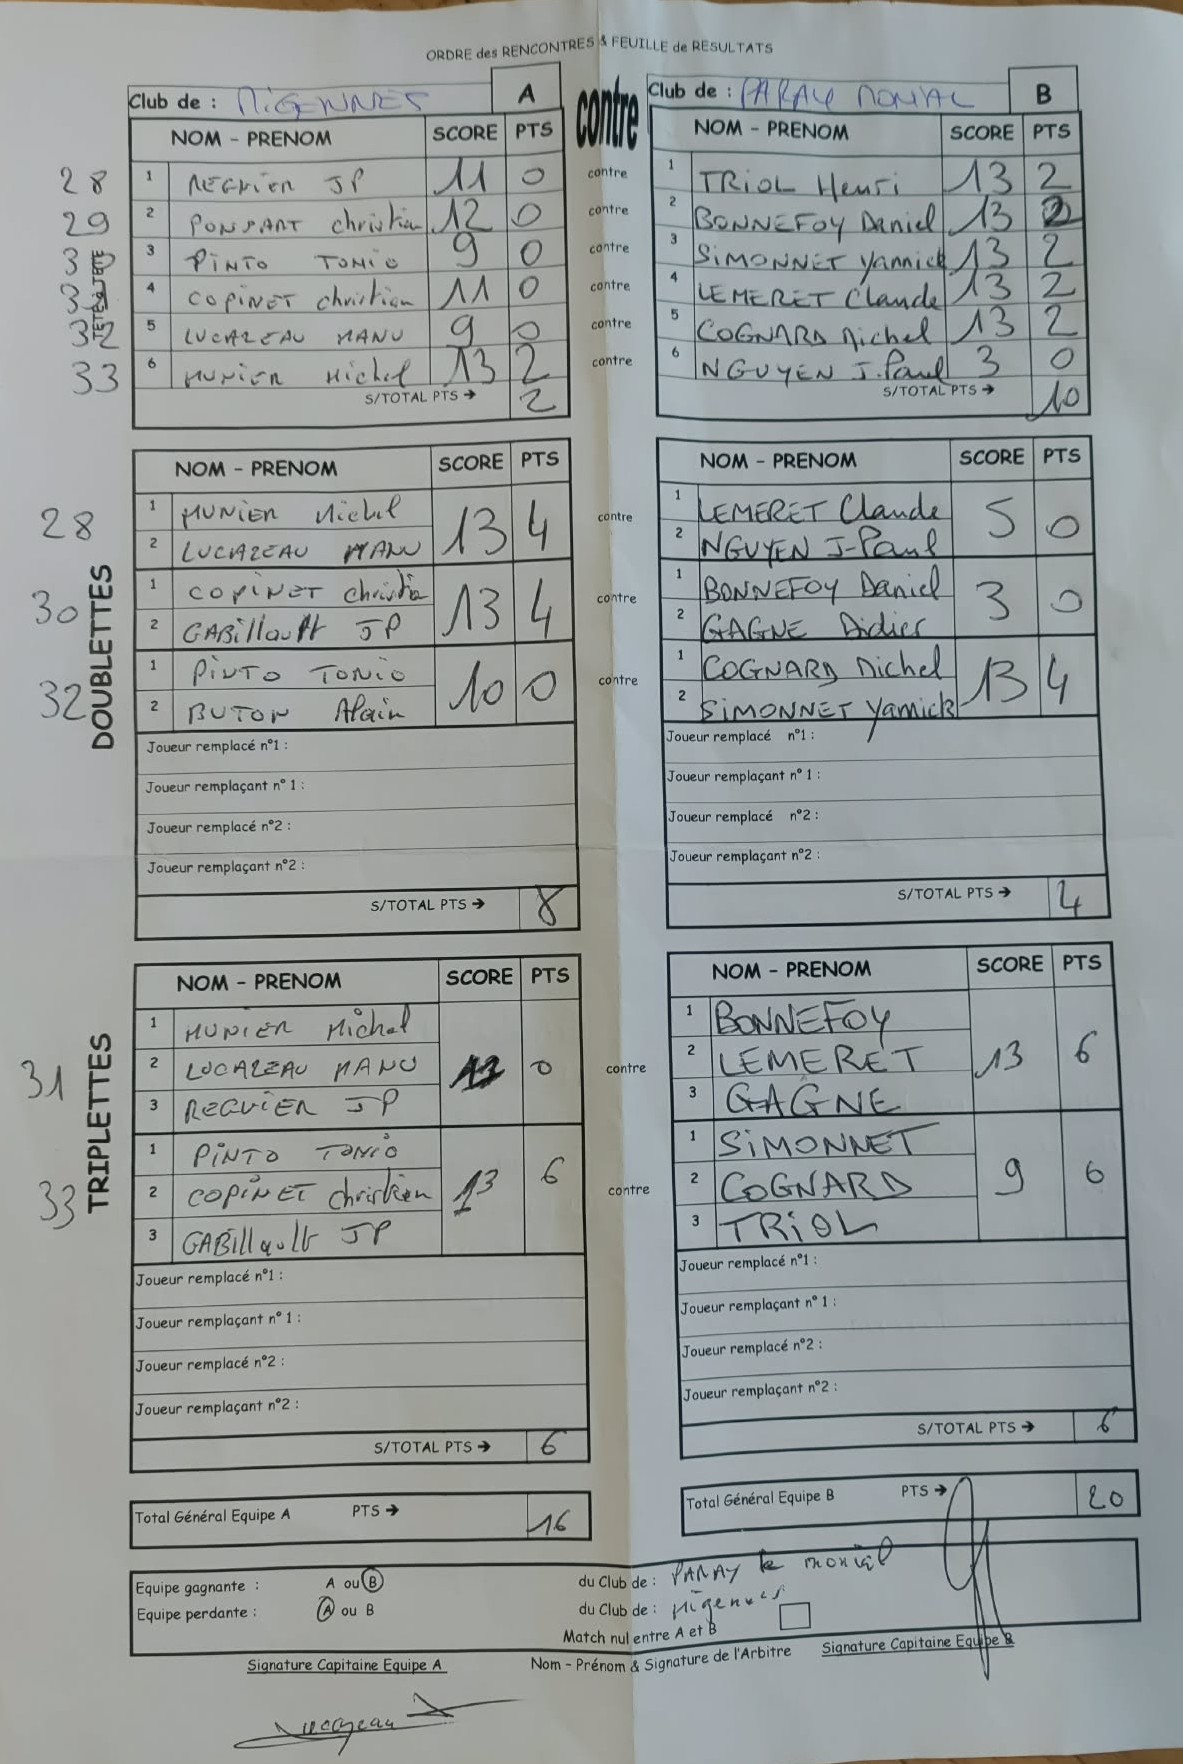 ORDRE des RENCONTRES & FEUILLE de RESULTATS
Club de : MIGENNES A contre Club de : PARAY MONIAL B
NOM - PRENOM SCORE PTS NOM - PRENOM SCORE PTS
TETE à TETE
28 1 REGNIER JP 11 0 contre 1 TRIOL Henri 13 2
29 2 PONSART christian 12 0 contre 2 BONNEFOY Daniel 13 2
30 3 PINTO TONIO 9 0 contre 3 SIMONNET Yannick 13 2
31 4 COPINET christian 11 0 contre 4 LEMERET Claude 13 2
32 5 LUCAZEAU MANU 9 0 contre 5 COGNARD Michel 13 2
33 6 MUNIER Michel 13 2 contre 6 NGUYEN J.Paul 3 0
S/TOTAL PTS → 2 S/TOTAL PTS → 10
NOM - PRENOM SCORE PTS NOM - PRENOM SCORE PTS
DOUBLETTES
28 1 MUNIER Michel 13 4 contre 1 LEMERET Claude 5 0
2 LUCAZEAU MANU 2 NGUYEN J-Paul
30 1 COPINET christia 13 4 contre 1 BONNEFOY Daniel 3 0
2 GABillault JP 2 GAGNE Didier
32 1 PINTO TONIO 10 0 contre 1 COGNARD Michel 13 4
2 BUTON Alain 2 SIMONNET Yannick
Joueur remplacé n°1 : Joueur remplacé n°1 :
Joueur remplaçant n° 1 : Joueur remplaçant n° 1 :
Joueur remplacé n°2 : Joueur remplacé n°2 :
Joueur remplaçant n°2 : Joueur remplaçant n°2 :
S/TOTAL PTS → 8 S/TOTAL PTS → 4
NOM - PRENOM SCORE PTS NOM - PRENOM SCORE PTS
TRIPLETTES
1 MUNIER Michel 1 BONNEFOY
31 2 LUCAZEAU MANU 0 contre 2 LEMERET 13 6
3 REGNIER JP 3 GAGNE
1 PINTO TONIO 1 SIMONNET
33 2 COPINET christian 13 6 contre 2 COGNARD 9 6
3 GABillault JP 3 TRIOL
Joueur remplacé n°1 : Joueur remplacé n°1 :
Joueur remplaçant n° 1 : Joueur remplaçant n° 1 :
Joueur remplacé n°2 : Joueur remplacé n°2 :
Joueur remplaçant n°2 : Joueur remplaçant n°2 :
S/TOTAL PTS → 6 S/TOTAL PTS → 6
Total Général Equipe A PTS → 16 Total Général Equipe B PTS → 20
Equipe gagnante : A ou B du Club de : PARAY le monial
Equipe perdante : A ou B du Club de : Migennes
Match nul entre A et B
Signature Capitaine Equipe A Nom - Prénom & Signature de l'Arbitre Signature Capitaine Equipe B